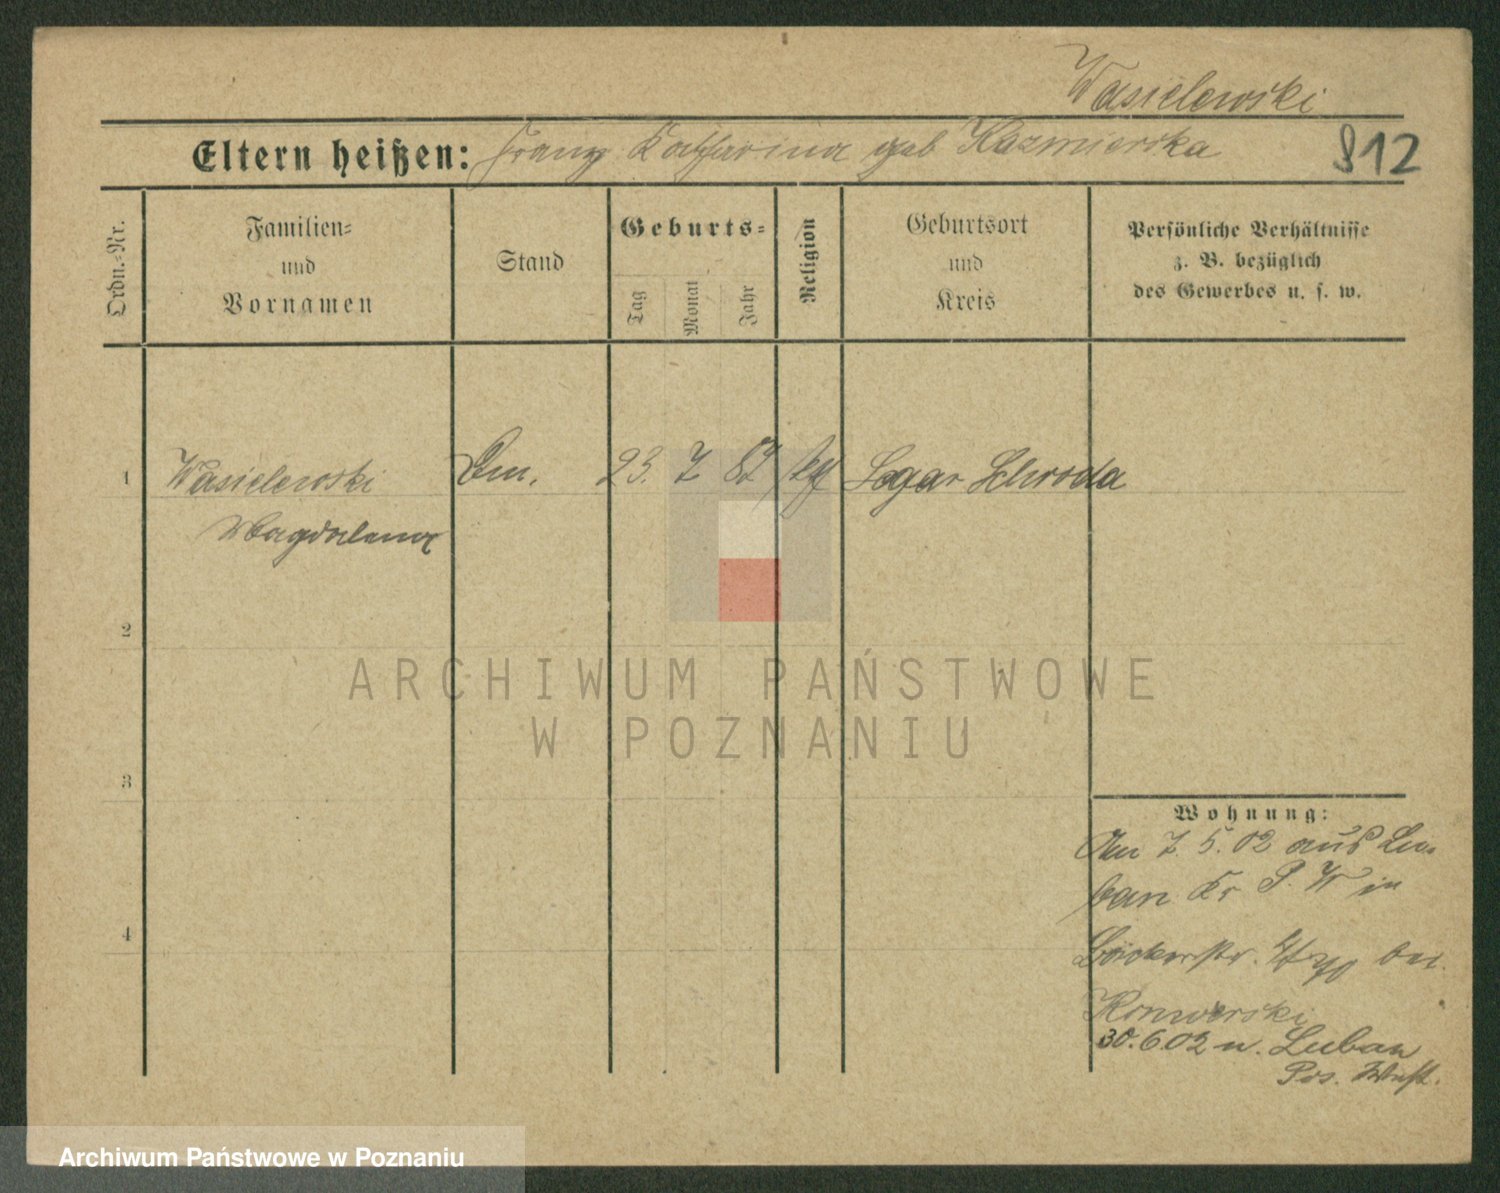 Wasielewski
Eltern heißen: Franz Katharina geb Kazmierska
812
Ordn.-Nr.
Familien-
und
Vornamen
Stand
Geburts-
Tag
Monat
Jahr
Religion
Geburtsort
und
Kreis
Persönliche Verhältnisse
z. B. bezüglich
des Gewerbes u. s. w.
1 Wasielewski 23. 7 87 Schroda
Magdalena
2
3
4
Wohnung:
Am 7. 5. 02 aus Lu-
ban Kr P. W in
Bäckerstr. bei
30.6.02 n. Luban
Pos. West.
ARCHIWUM PAŃSTWOWE
W POZNANIU
Archiwum Państwowe w Poznaniu